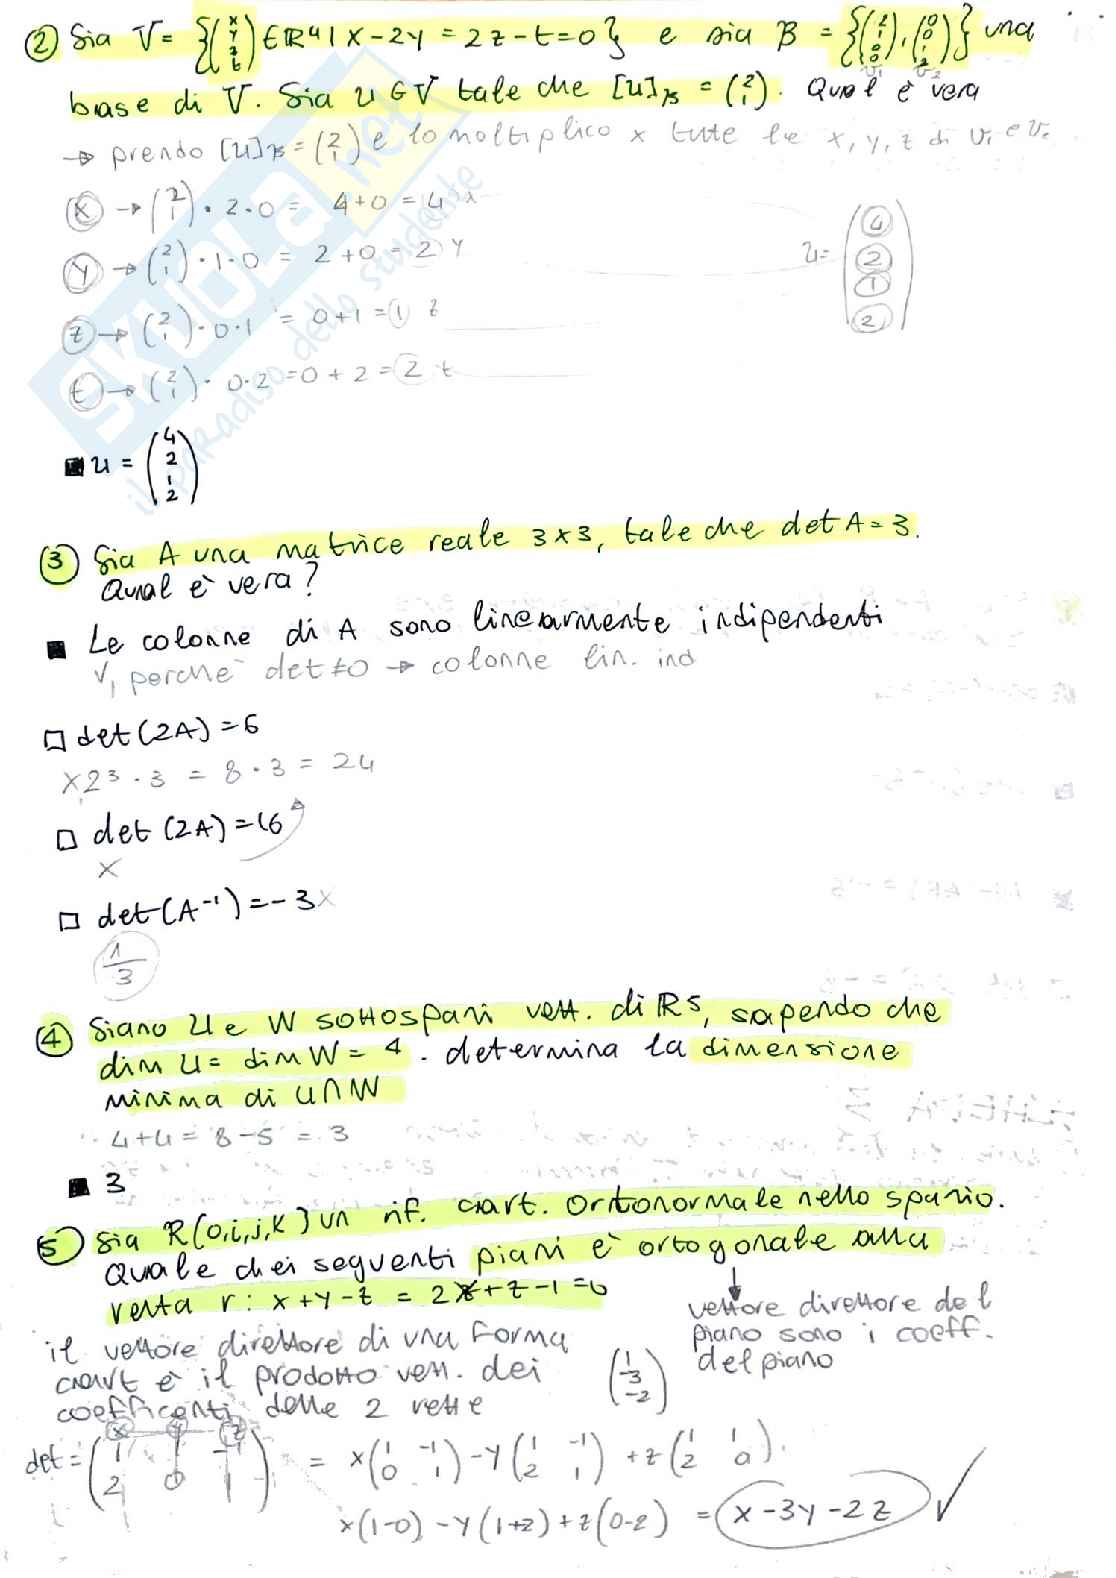 ② Sia V = {(x y z t) ∈ ℝ⁴ | x - 2y = 2z - t = 0} e sia B = {(2 1 0 0), (0 0 1 2)} una
v₁ v₂
base di V. Sia u ∈ V tale che [u]B = (2 1). Qual è vera
→ prendo [u]B = (2 1) e lo moltiplico x tutte le x, y, z di v₁ e v₂
x → (2 1) · 2 · 0 = 4+0 = 4 x
y → (2 1) · 1 · 0 = 2+0 = 2 y
z → (2 1) · 0 · 1 = 0+1 = 1 z
t → (2 1) · 0 · 2 = 0+2 = 2 t
u = (4 2 1 2)
■ u = (4 2 1 2)
SKUOLA.net
il paradiso dello studente
③ Sia A una matrice reale 3x3, tale che det A = 3.
Qual è vera?
■ Le colonne di A sono linearmente indipendenti
V, perché det ≠ 0 → colonne lin. ind
□ det(2A) = 6
x 2³ · 3 = 8 · 3 = 24
□ det(2A) = 16
x
□ det(A⁻¹) = -3 x
1/3
④ Siano U e W sottospazi vett. di ℝ5, sapendo che
dim U = dim W = 4. determina la dimensione
minima di U∩W
4+4 = 8-5 = 3
■ 3
5 Sia R(o,i,j,k) un rif. cart. ortonormale nello spazio.
Quale dei seguenti piani è ortogonale alla
retta r: x+y-z = 2x+z-1=0
vettore direttore del
piano sono i coeff.
del piano
il vettore direttore di una forma
cart è il prodotto vett. dei
coefficenti delle 2 rette
(1 -3 -2)
det = (x y z 1 1 -1 2 0 1) = x(1 -1 0 1) - y(1 -1 2 1) + z(1 1 2 0)
x(1-0) - y(1+2) + z(0-2) = x-3y-2z ✓